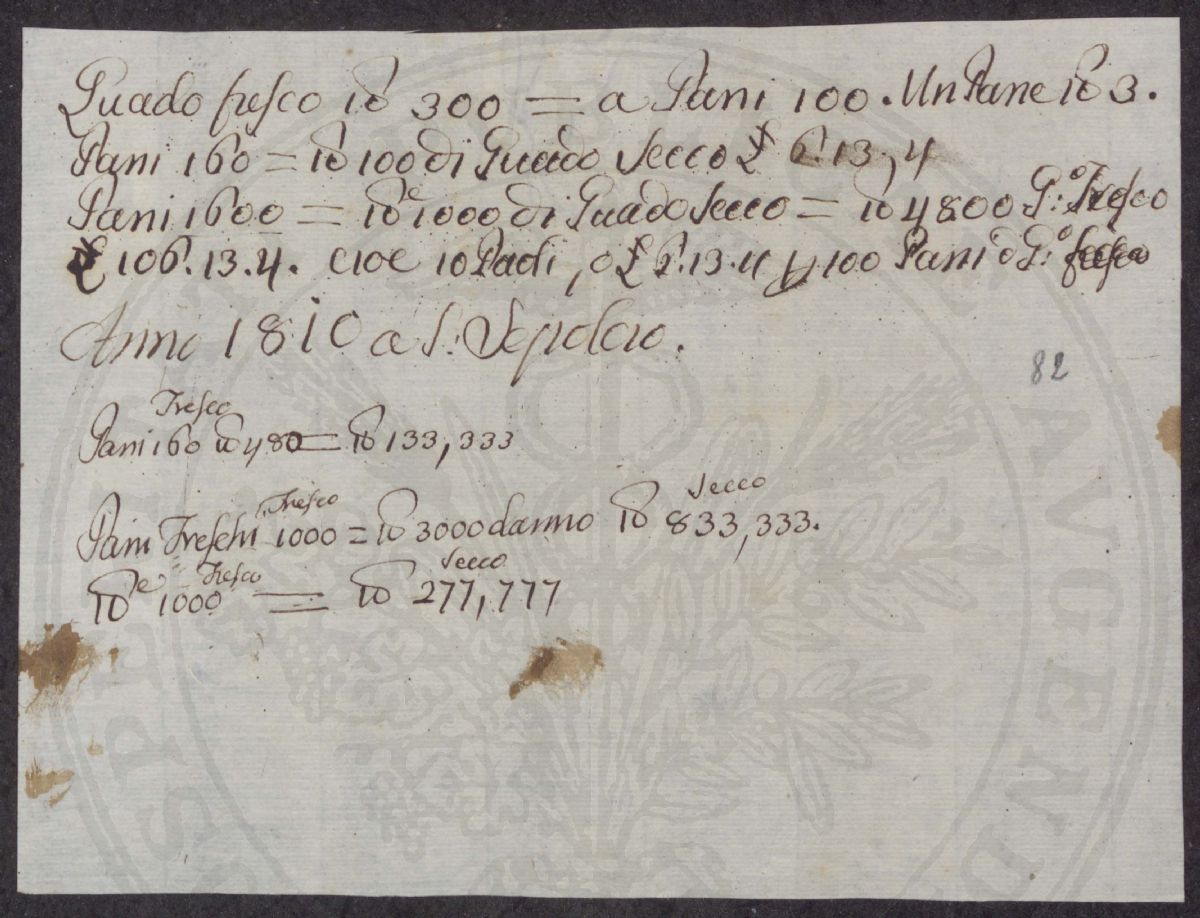 Guado fresco lb 300 = a Pani 100. Un Pane lb 3.
Pani 160 = lb 100 di Guado Secco £ 6.13,4
Pani 1600 = lbe 1000 di Guado Secco = lb 4800 G:o Fresco
£ 106.13.4. cioe 10 Padi, o £ 6.13.4 100 Pani G:o
Anno 1810 a S: Sepolcro.
82
Fresco
Pani 160 lb 480 = lb 133,333
Fresco Secco
Pani Freschi 1000 = lb 3000 danno lb 833,333.
Fresco Secco
lbe 1000 = lb 277,777
AVGEND